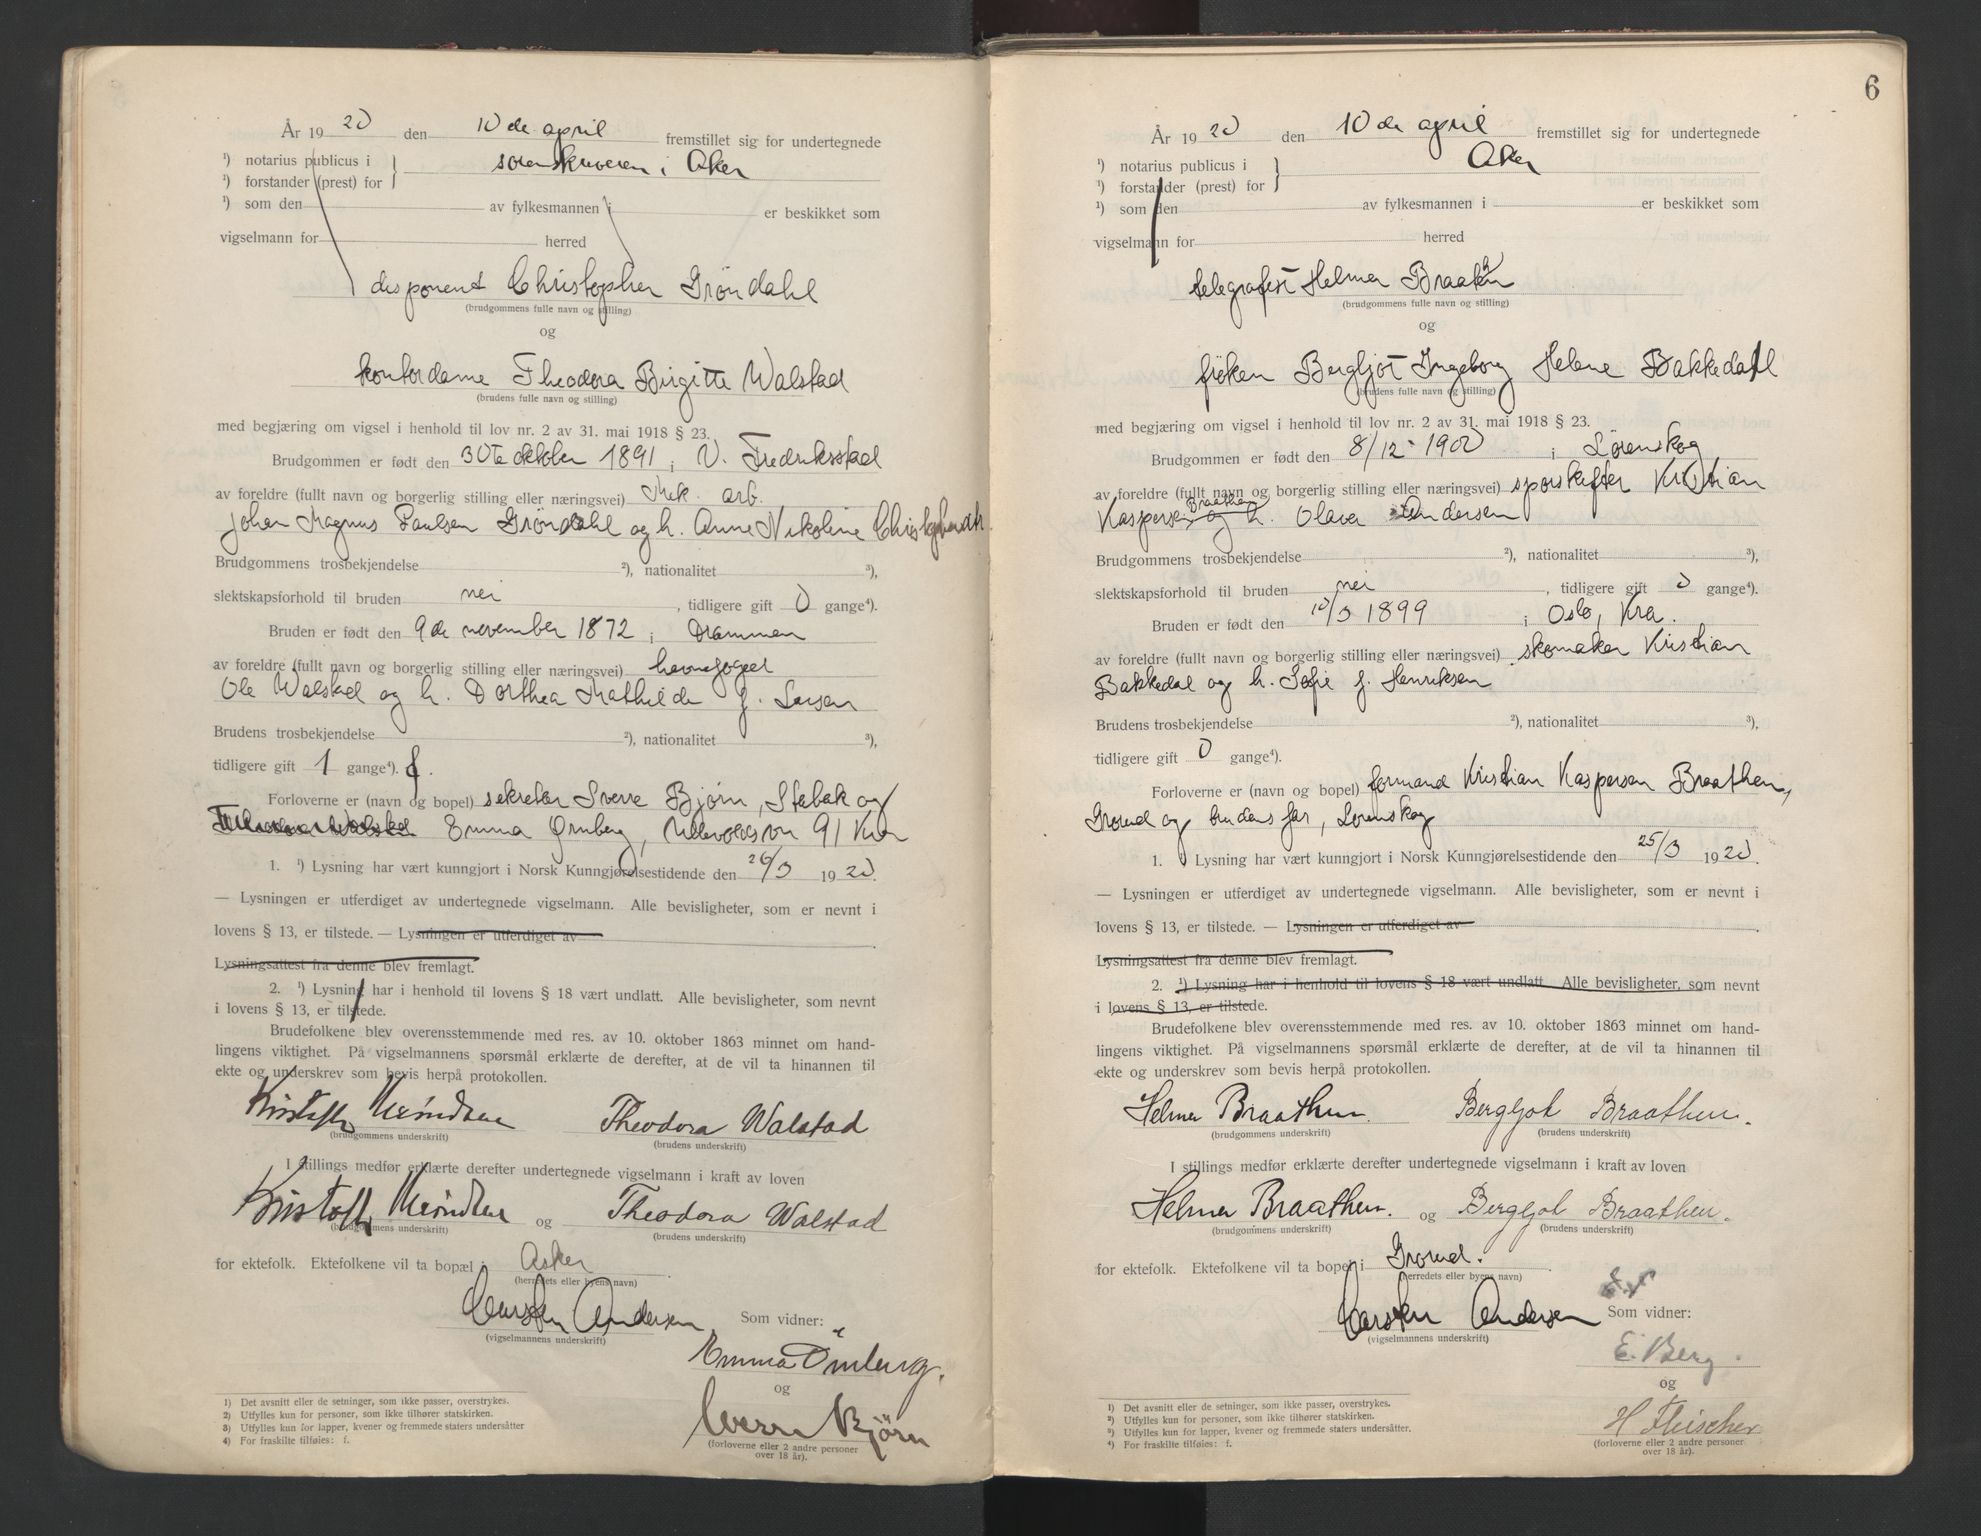 År 1920 den 10de april fremstillet sig for undertegnede
¹) notarius publicus i
sorenskriveren i Aker
¹) forstander (prest) for
¹) som den av fylkesmannen i er beskikket som
vigselmann for herred
disponent Christopher Grøndahl
(brudgommens fulle navn og stilling)
og
kontordame Theodora Birgitte Walstad
(brudens fulle navn og stilling)
med begjæring om vigsel i henhold til lov nr. 2 av 31. mai 1918 § 23.
Brudgommen er født den 30te oktober 1891 i V. Fredriksstad
av foreldre (fullt navn og borgerlig stilling eller næringsvei) Mek. arb.
Johan Magnus Paulsen Grøndahl og h. Anne Nikoline
Brudgommens trosbekjendelse ²), nationalitet ³),
slektskapsforhold til bruden nei, tidligere gift 0 gange⁴).
Bruden er født den 9de november 1872 i Drammen
av foreldre (fullt navn og borgerlig stilling eller næringsvei) havnefoged
Ole Walstad og h. Dorthea Mathilde f. Larsen
Brudens trosbekjendelse ²), nationalitet ³),
tidligere gift 1 gange⁴). f.
Forloverne er (navn og bopel) sekretær Sverre Bjørn, Stabæk og
Emma Ørnberg, Ullevoldsvn 91 Kra
1. ¹) Lysning har vært kunngjort i Norsk Kunngjørelsestidende den 26/3 1920.
— Lysningen er utferdiget av undertegnede vigselmann. Alle bevisligheter, som er nevnt i
lovens § 13, er tilstede. — Lysningen er utferdiget av
Lysningsattest fra denne blev fremlagt.
2. ¹) Lysning har i henhold til lovens § 18 vært undlatt. Alle bevisligheter, som nevnt
i lovens § 13, er tilstede.
Brudefolkene blev overensstemmende med res. av 10. oktober 1863 minnet om hand-
lingens viktighet. På vigselmannens spørsmål erklærte de derefter, at de vil ta hinannen til
ekte og underskrev som bevis herpå protokollen.
Theodora Walstad
(brudgommens underskrift) (brudens underskrift)
I stillings medfør erklærte derefter undertegnede vigselmann i kraft av loven
og Theodora Walstad
(brudgommens underskrift) (brudens underskrift)
for ektefolk. Ektefolkene vil ta bopæl i Asker
(herredets eller byens navn)
Carsten Andersen Som vidner:
(vigselmannens underskrift)
Emma Örnberg.
og
Sverre Bjørn
(forloverne eller 2 andre personer
over 18 år).
1) Det avsnitt eller de setninger, som ikke passer, overstrykes.
2) Utfylles kun for personer, som ikke tilhører statskirken.
3) Utfylles kun for lapper, kvener og fremmede staters undersåtter
4) For fraskilte tilføies: f.
6
År 1920 den 10de april fremstillet sig for undertegnede
¹) notarius publicus i
Aker
¹) forstander (prest) for
¹) som den av fylkesmannen i er beskikket som
vigselmann for herred
telegrafist Helmer Braathen
(brudgommens fulle navn og stilling)
og
frøken Bergljot Ingeborg Helene Bakkedal
(brudens fulle navn og stilling)
med begjæring om vigsel i henhold til lov nr. 2 av 31. mai 1918 § 23.
Brudgommen er født den 8/12 1900 i Lørenskog
av foreldre (fullt navn og borgerlig stilling eller næringsvei) sporskifter Kristian
Kaspersen Braathen og h. Olava Andersen
Brudgommens trosbekjendelse ²), nationalitet ³),
slektskapsforhold til bruden nei, tidligere gift 0 gange⁴).
Bruden er født den 10/3 1899 i Oslo, Kra.
av foreldre (fullt navn og borgerlig stilling eller næringsvei) skomaker Kristian
Bakkedal og h. Sofie f. Henriksen
Brudens trosbekjendelse ²), nationalitet ³),
tidligere gift 0 gange⁴).
Forloverne er (navn og bopel) formand Kristian Kaspersen Braathen,
Grorud og brudens far, Lørenskog
1. ¹) Lysning har vært kunngjort i Norsk Kunngjørelsestidende den 25/3 1920.
— Lysningen er utferdiget av undertegnede vigselmann. Alle bevisligheter, som er nevnt i
lovens § 13, er tilstede. — Lysningen er utferdiget av
Lysningsattest fra denne blev fremlagt.
2. ¹) Lysning har i henhold til lovens § 18 vært undlatt. Alle bevisligheter, som nevnt
i lovens § 13, er tilstede.
Brudefolkene blev overensstemmende med res. av 10. oktober 1863 minnet om hand-
lingens viktighet. På vigselmannens spørsmål erklærte de derefter, at de vil ta hinannen til
ekte og underskrev som bevis herpå protokollen.
Helmer Braathen. Bergljot Braathen.
(brudgommens underskrift) (brudens underskrift)
I stillings medfør erklærte derefter undertegnede vigselmann i kraft av loven
Helmer Braathen. og Bergljot Braathen.
(brudgommens underskrift) (brudens underskrift)
for ektefolk. Ektefolkene vil ta bopel i Grorud.
(herredets eller byens navn)
Carsten Andersen Som vidner:
(vigselmannens underskrift)
E. Berg.
og
H Fleischer
(forloverne eller 2 andre personer
over 18 år).
1) Det avsnitt eller de setninger, som ikke passer, overstrykes.
2) Utfylles kun for personer, som ikke tilhører statskirken.
3) Utfylles kun for lapper, kvener og fremmede staters undersåtter.
4) For fraskilte tilføies: f.